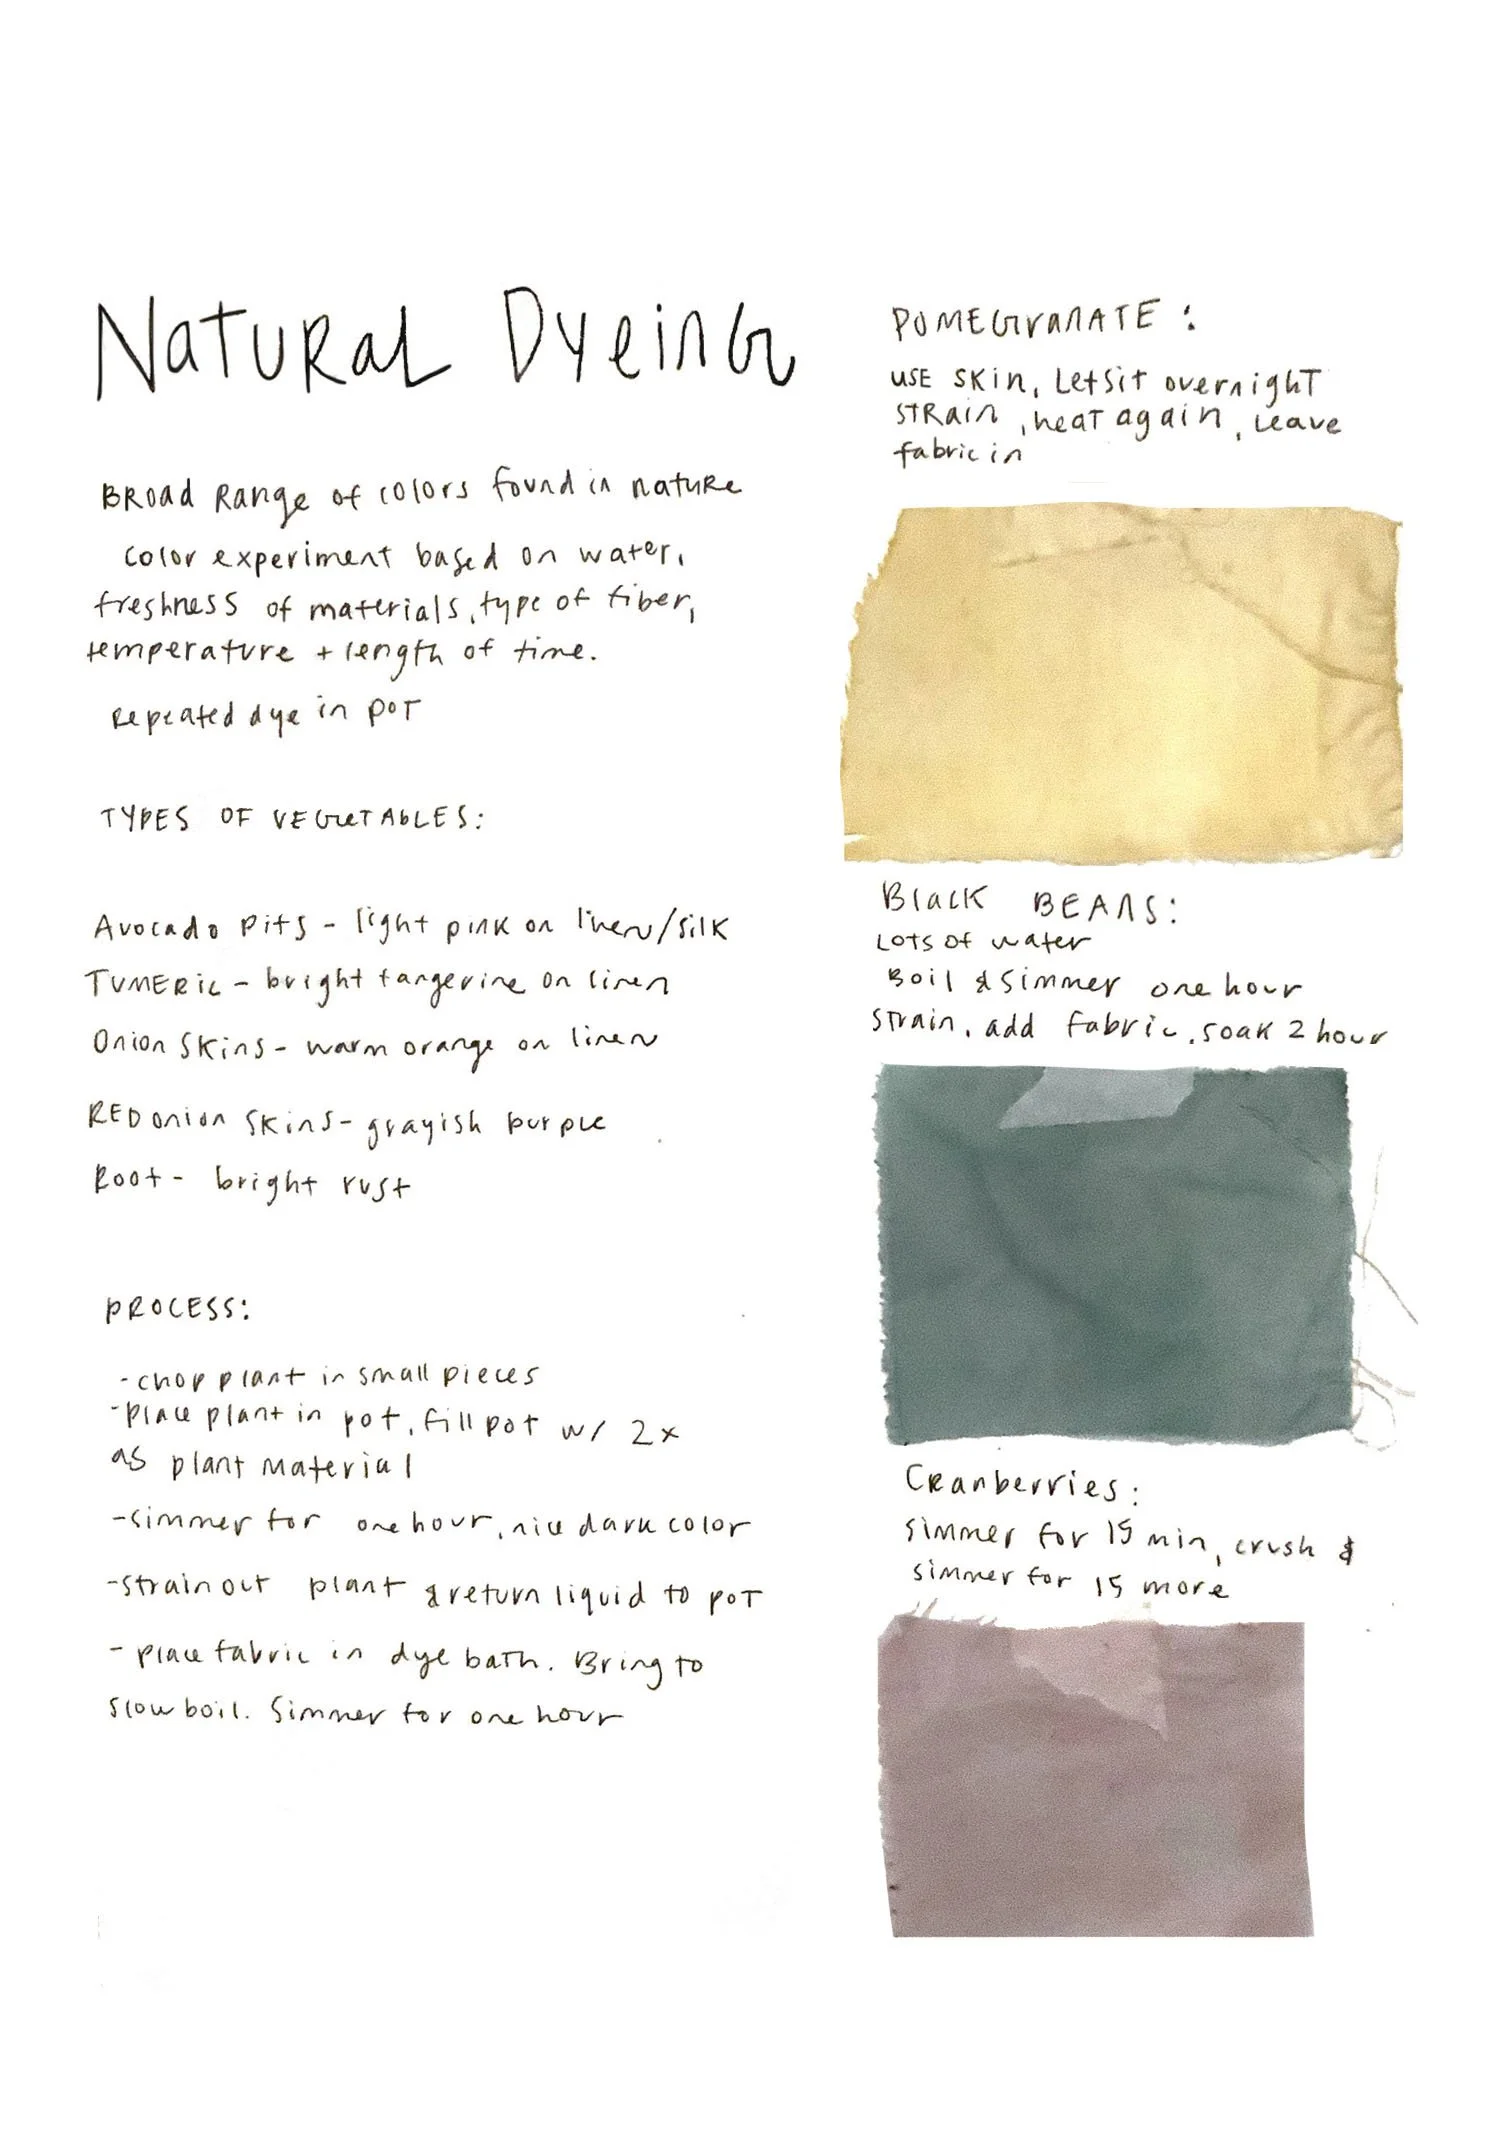 Natural Dyeing
Broad Range of colors found in nature
color experiment based on water,
freshness of materials, type of fiber,
temperature + length of time.
Repeated dye in pot
TYPES OF VEGETABLES:
Avocado pits - light pink on linen/silk
TUMERIC - bright tangerine on linen
Onion skins - warm orange on linen
RED onion skins - grayish purple
Root - bright rust
PROCESS:
- chop plant in small pieces
- place plant in pot, fill pot w/ 2x
as plant material
- simmer for one hour, nice dark color
- strain out plant & return liquid to pot
- place fabric in dye bath. Bring to
slow boil. Simmer for one hour
POMEGranATE:
USE skin, Let sit overnight
strain, heat again, leave
fabric in
Black BEANS:
Lots of water
Boil & simmer one hour
strain, add fabric, soak 2 hour
Cranberries:
simmer for 15 min, crush &
simmer for 15 more